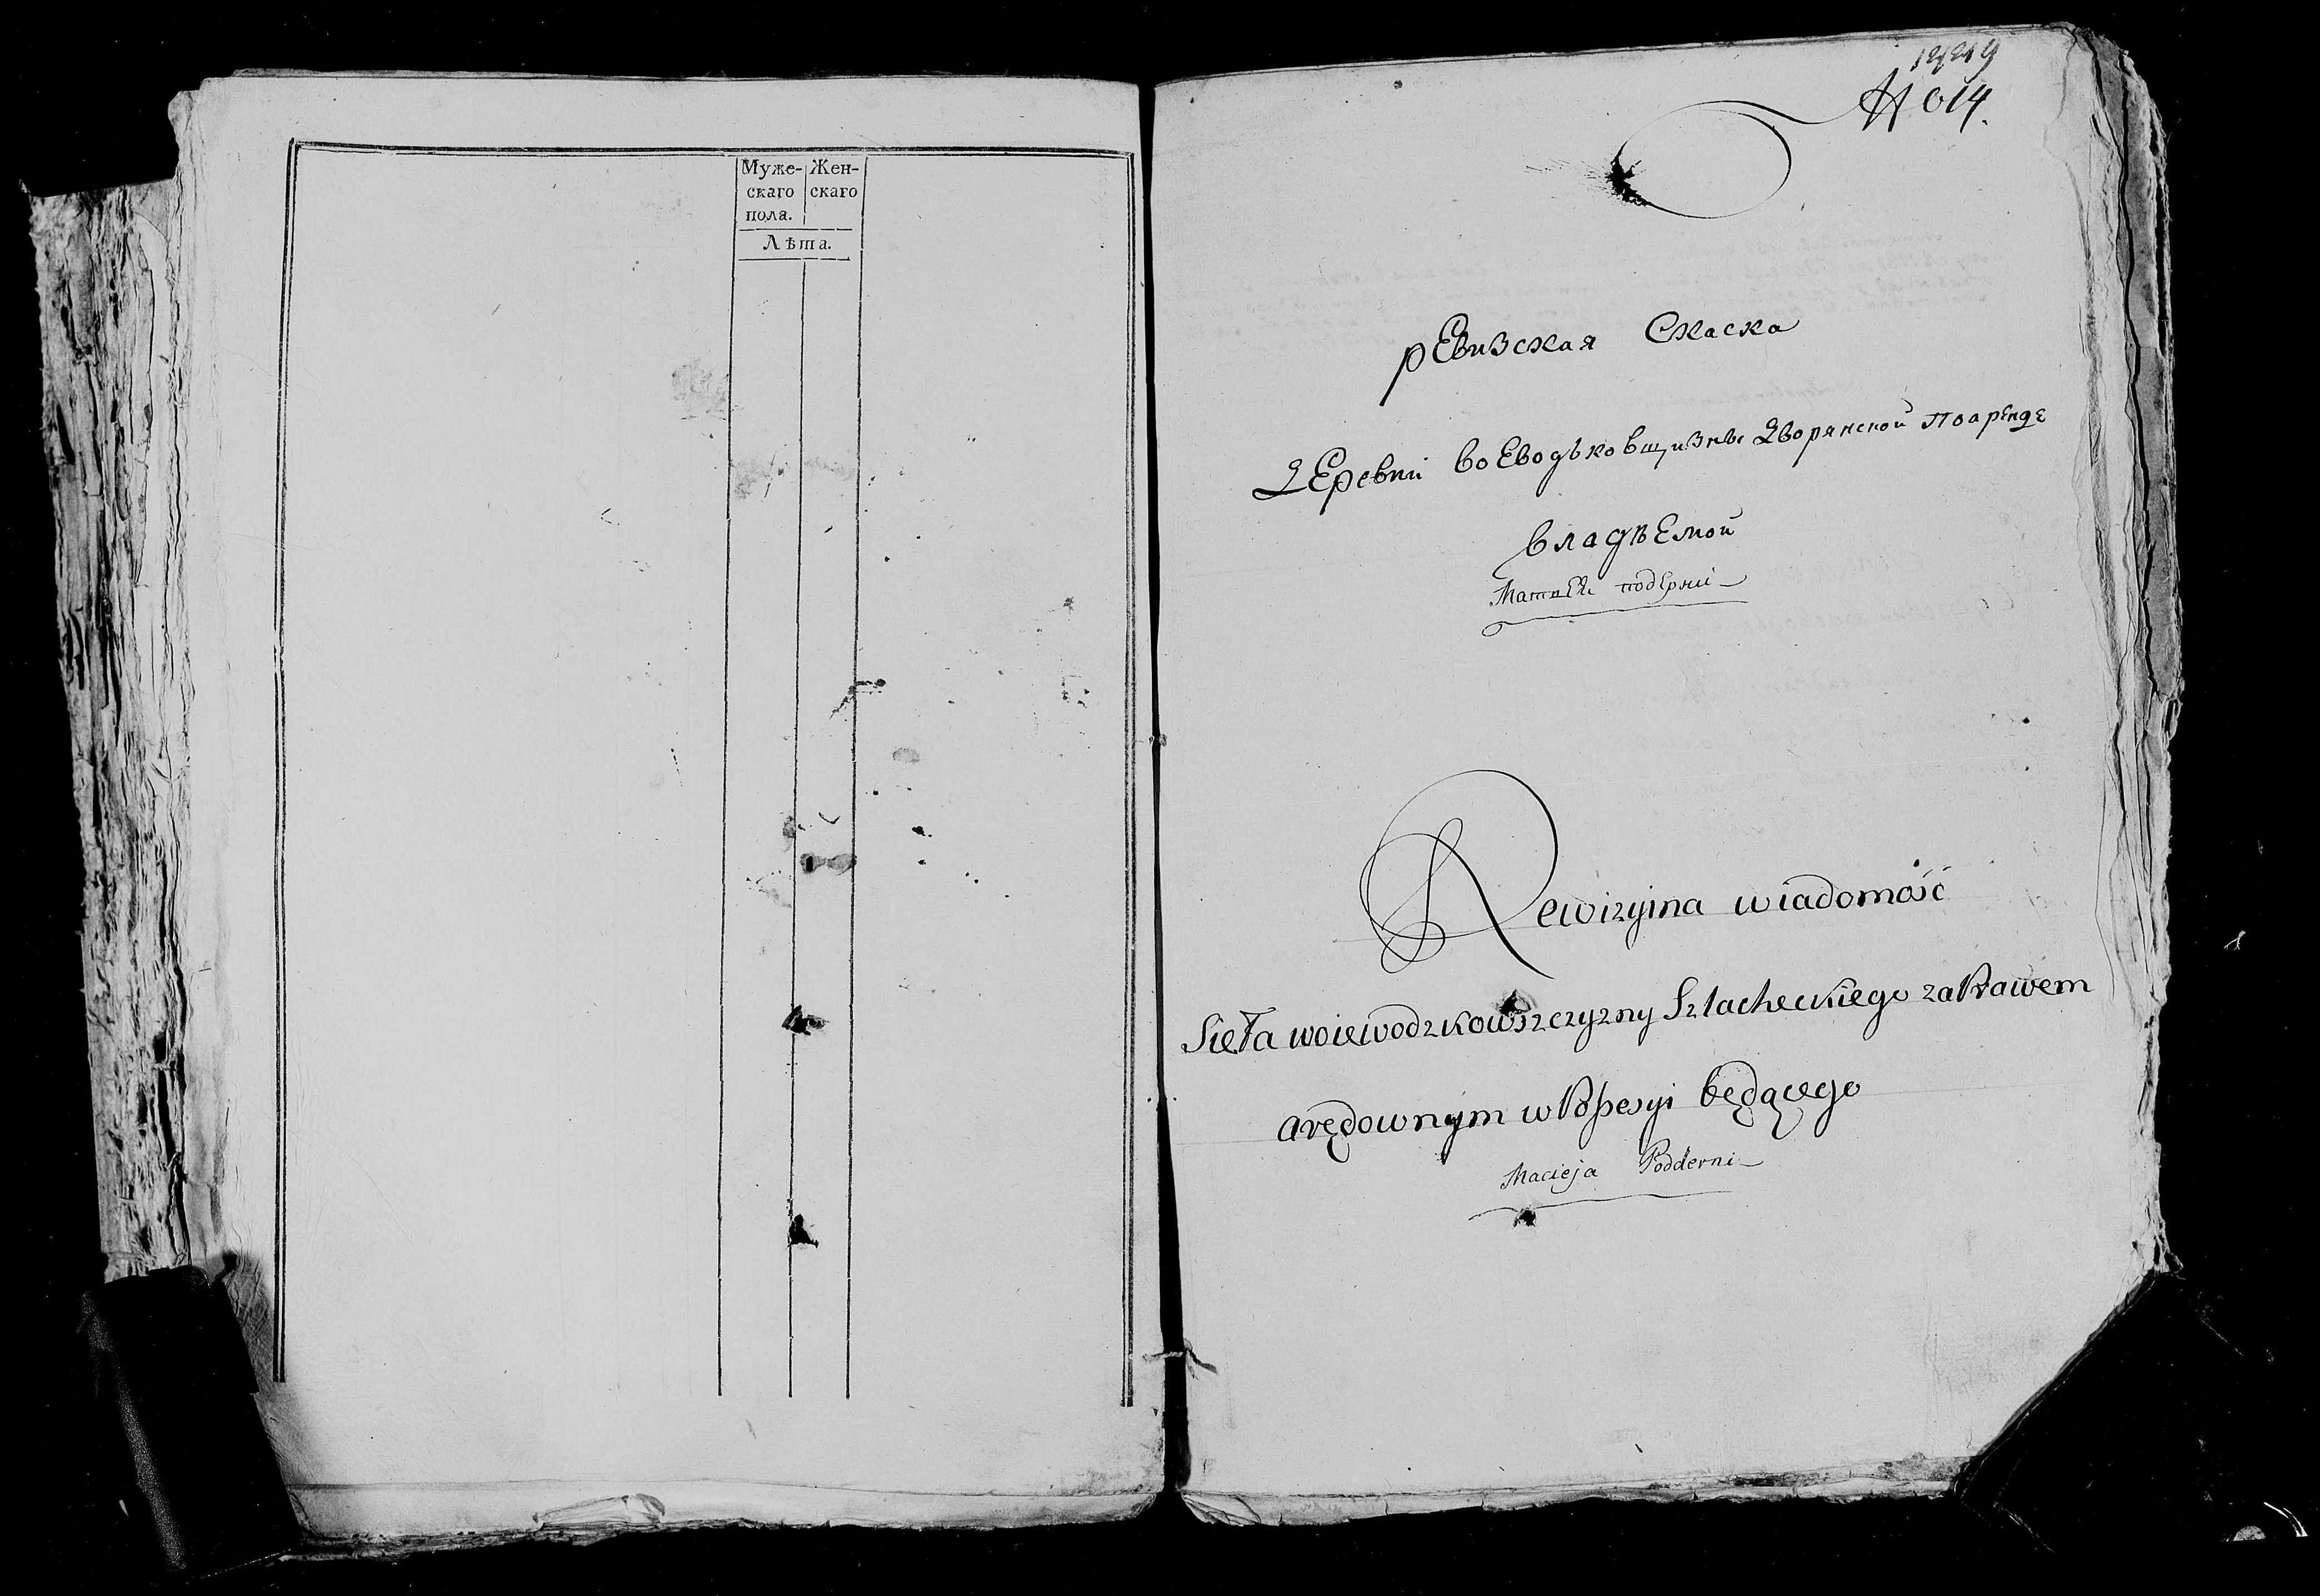 Муже- Жен-
скаго скаго
пола.
Лѣта.
№ 014.
рЕвизская Скаска
дЕревни воЕводьковщизны дворянской поарендѣ
владѣЕмой
Подерни
Rewizyina wiadomość
Sieła woiewodzkowszczyzny Szlacheckiego zaPrawem
arędownym wPossesyi będącego
Macieja Podderni